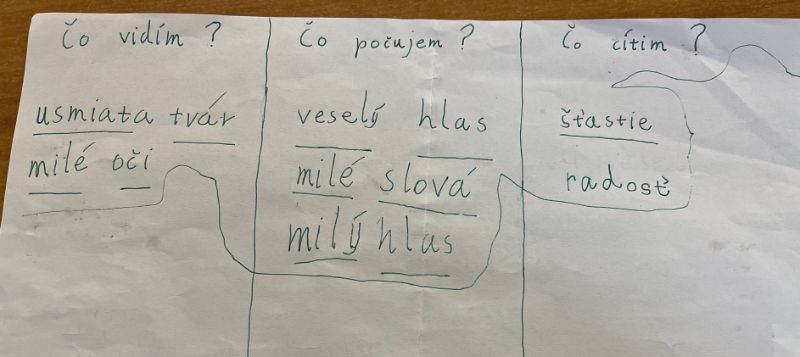 Čo vidím ?
usmiata tvár
milé oči
Čo počujem ?
veselý hlas
milé slová
milý hlas
Čo cítim ?
šťastie
radosť